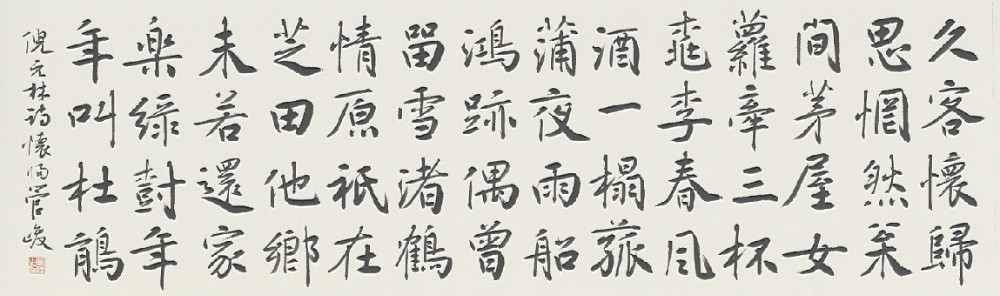 久客懷歸
思惘然枀
間茅屋女
蘿牽三杯
桃李春風
酒一榻菰
蒲夜雨船
鴻跡偶曾
留雪渚鶴
情原祇在
芝田他鄉
未若還家
樂綠樹年
年叫杜鵑
倪云林詩懷歸管峻